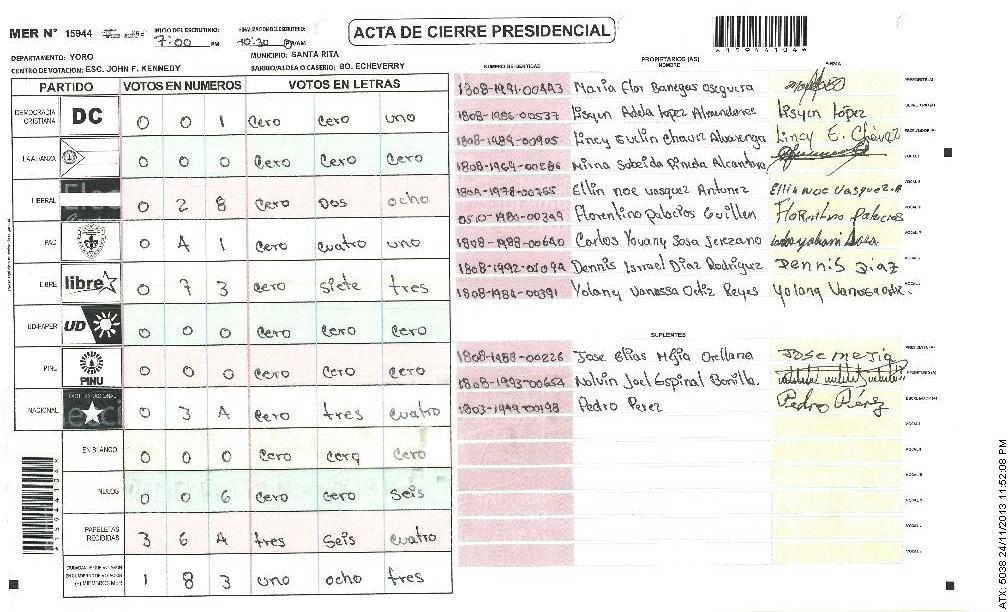 MER N° 15944 INICIO DEL ESCRUTINIO: 7:00 PM FINALIZACION DEL ESCRUTINIO: 10:30 AM ACTA DE CIERRE PRESIDENCIAL
DEPARTAMENTO: YORO MUNICIPIO: SANTA RITA
CENTRO DE VOTACION: ESC. JOHN F. KENNEDY BARRIO/ALDEA O CASERIO: BO. ECHEVERRY
PARTIDO VOTOS EN NUMEROS VOTOS EN LETRAS
DEMOCRACIA CRISTIANA DC 0 0 1 cero cero uno
LA ALIANZA 0 0 0 cero cero cero
LIBERAL 0 2 8 cero Dos ocho
PAC 0 4 1 cero cuatro uno
LIBRE libre 0 7 3 cero siete tres
UD-FAPER UD 0 0 0 cero cero cero
PINU PINU 0 0 0 cero cero cero
NACIONAL 0 3 4 cero tres cuatro
EN BLANCO 0 0 0 cero cero cero
NULOS 0 0 6 cero cero seis
PAPELETAS RECIBIDAS 3 6 4 tres seis cuatro
1 8 3 uno ocho tres
NUMERO DE IDENTIDAD PROPIETARIOS (AS) NOMBRE FIRMA
1808-1991-00443 Maria Flor Banegas oseguera
1808-1986-00537 Lisyin Adela Lopez Almendares Lisyin López
1808-1989-00905 Lincy Evelin Chavez Alvarenga Lincy E. Chávez
1808-1969-00286 Mirna Sabeida Pineda Alcantara
1804-1978-00365 Ellin noe vasquez Antunez Ellin Noe Vasquez.A
0510-1980-00349 Florentino Palacios Guillen Florentino Palacios
1808-1988-00640 Carlos Yovany Sosa Serezano
1808-1992-01094 Dennis Ismael Diaz Rodriguez Dennis Diaz
1808-1984-00391 Yolany Vanessa Ortiz Reyes
SUPLENTES
1808-1988-00226 Jose Elias Mejia Orellana Jose mejia
1808-1993-00654 Nolvin Joel Espinal Bonilla.
1803-1949-00198 Pedro Perez Pedro Pérez
ATX: 5038 24/11/2013 11:52:08 PM